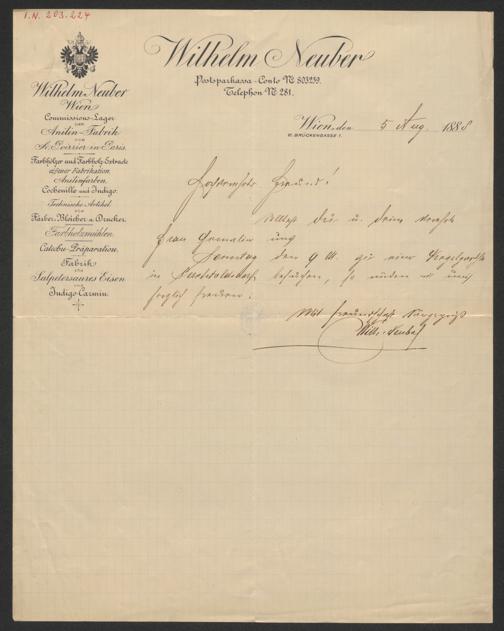 I.N. 203.224
Wilhelm Neuber
Postsparkassa-Conto № 803259.
Telephon № 281.
Wilhelm Neuber
Wien
Commissions-Lager
DER
Anilin-Fabrik
VON
A. Poirrier in Paris.
Farbhölzer und Farbholz-Extracte
eigener Fabrikation.
Anilinfarben,
Cochenille und Indigo.
Technische Artikel
FÜR
Färber, Bleicher u. Drucker.
Farbholzmühlen.
Catechu-Präparation.
Fabrik
FÜR
Salpetersaures Eisen
UND
Indigo-Carmin.
Wien, den 5 Aug. 1888
VI. BRÜCKENGASSE 1.
Hochverehrter Freund!
Willst Du u Deine verehrte
Frau Gemalin uns
Sonntag den 9 zu einer Kegelparthie
in besuchen, so würden wir uns
herzlich freuen.
Mit freundschaftl.
Wilh. Neuber